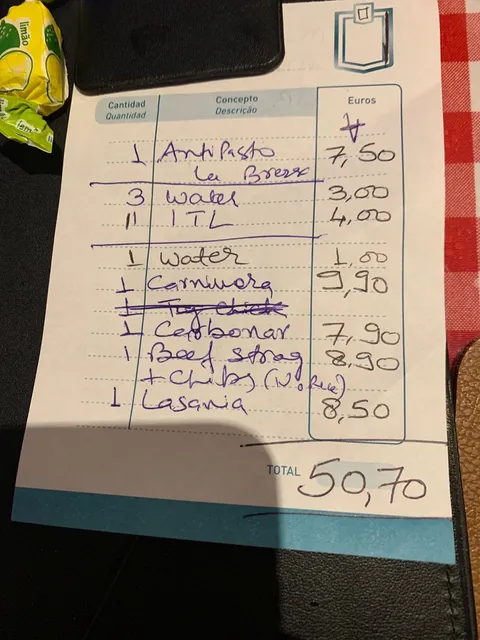 limão
Cantidad Concepto Euros
Quantidad Descrição
1 AntiPasto 7,50
La Brezx
3 Water 3,00
11 1TL 4,00
1 Water 1,00
1 Carnivora 9,90
1 Carbonar 7,90
1 Beef Strog 8,90
+ Chips (No Rice)
1 Lasania 8,50
TOTAL 50,70